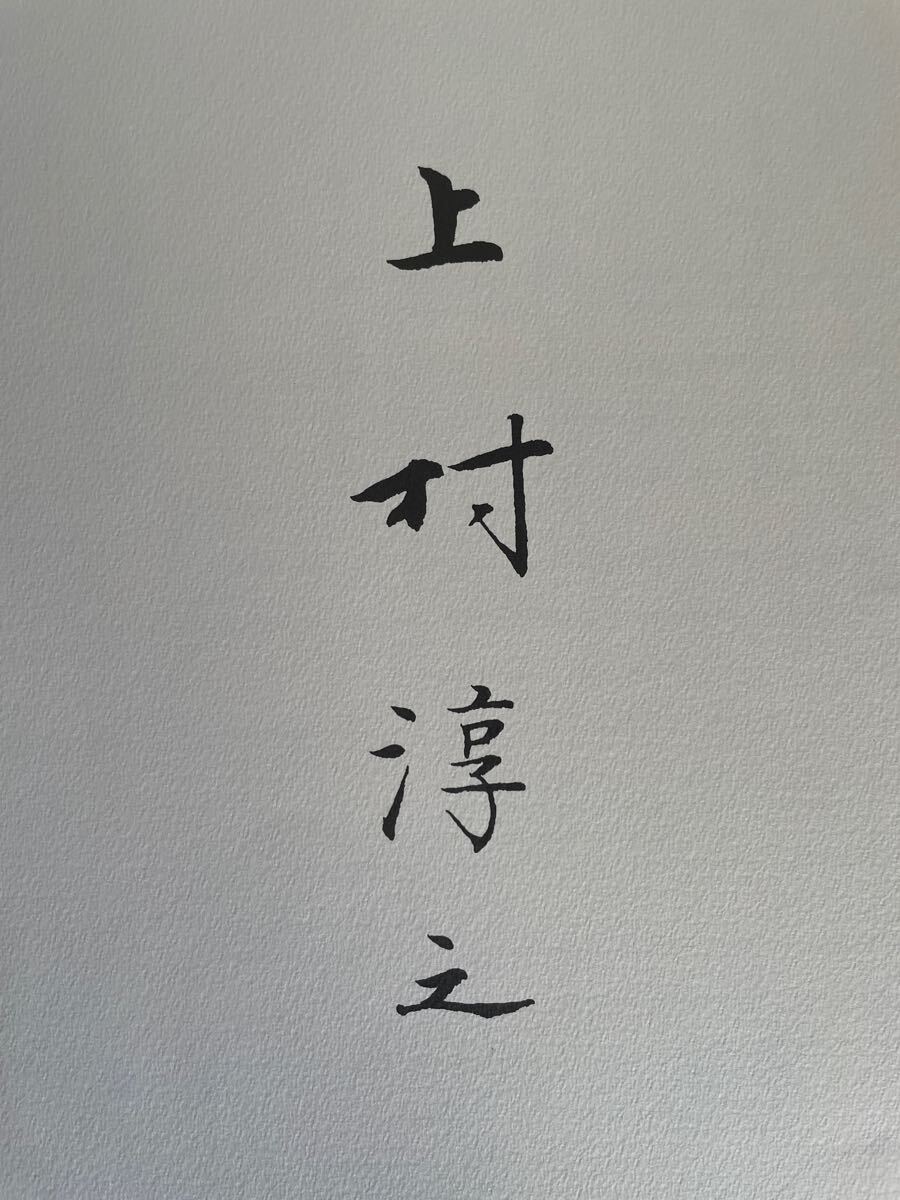 上村淳之